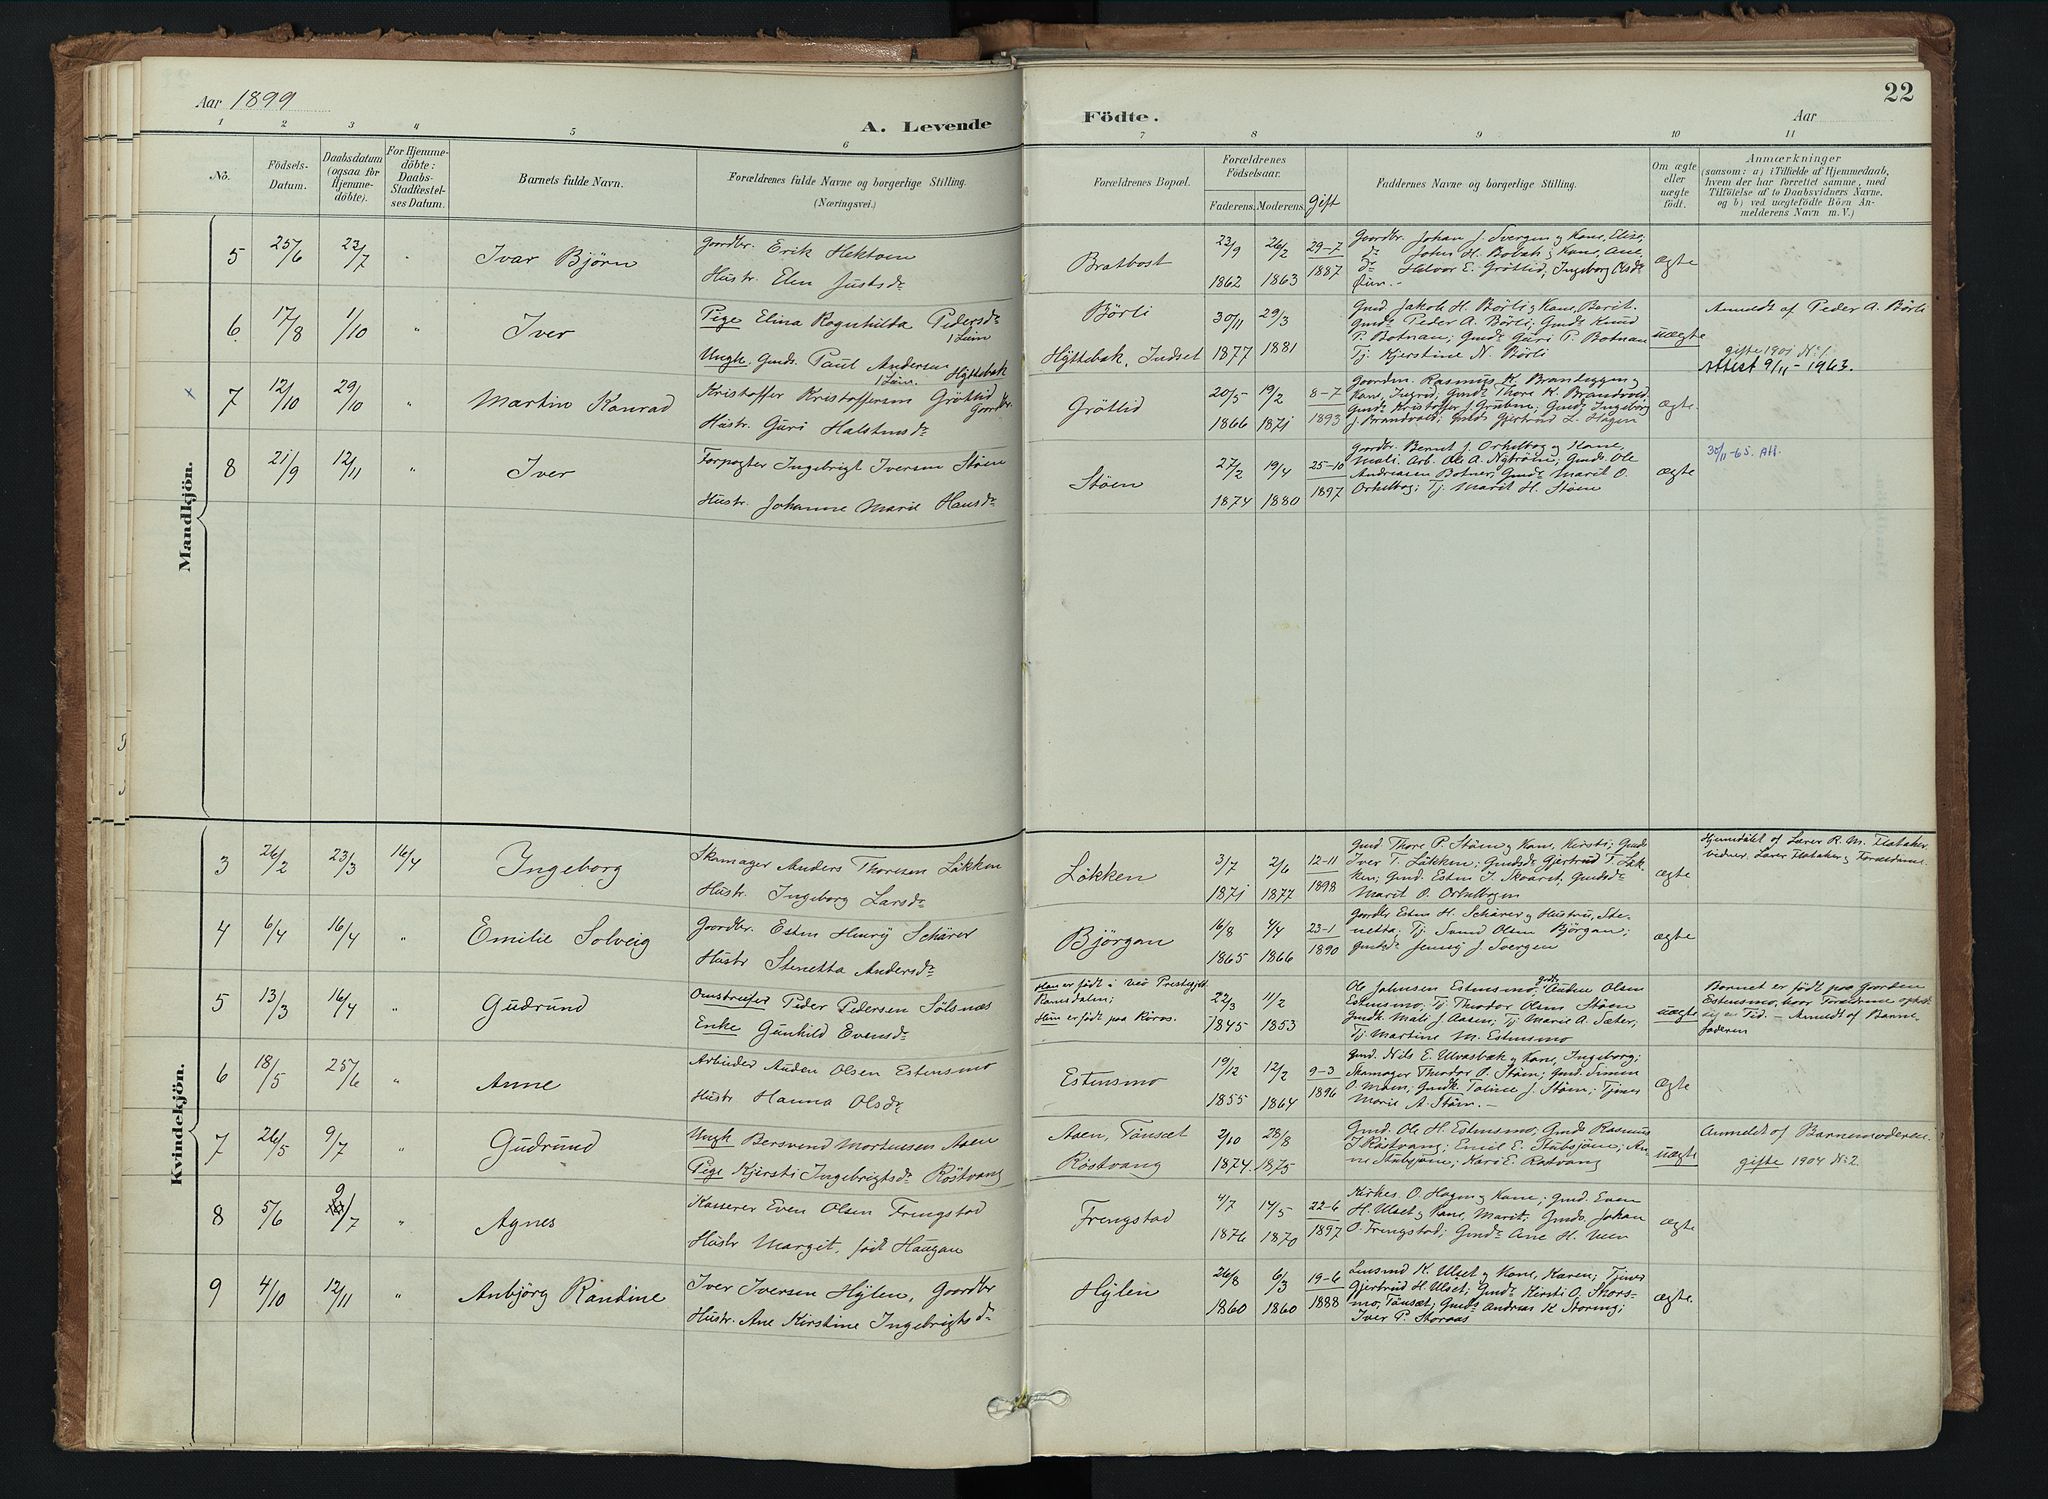 Aar 1899
A. Levende Födte.
Aar
22
1 2 3 4 5 6 7 8 9 10 11
No.
Födsels-Datum.
Daabsdatum (ogsaa för Hjemmedöbte).
For Hjemmedöbte: Daabs-Stadfæstelses Datum.
Barnets fulde Navn.
Forældrenes fulde Navne og borgerlige Stilling.
(Næringsvei.)
Forældrenes Bopæl.
Forældrenes Födselsaar.
Faderens. Moderens. Gift
Faddernes Navne og borgerlige Stilling.
Om ægte eller uægte födt.
Anmærkninger
(saasom: a) i Tilfælde af Hjemmedaab,
hvem der har forrettet samme, med
Tilföielse af to Daabsvidners Navne.
og b) ved uægtefödte Börn Anmelderens Navn m. V.)
Mandkjön.
5 25/6 23/7 " Ivar Bjørn
Gaardbr. Erik Hektoen
Hustr. Elen Justsdr
Bratbost
23/9 1862 26/2 1863 29-7 1887
Gaardbr. Johan J. Svergen og Kone, Elise,
dr John H. Bobak og Kone, Ane,
dr Halvor E. Grøtlid, Ingeborg Olsdr
ægte
6 17/8 1/10 " Iver
Pige Elina Ragnhilda Pedersdr
Ungk. Gmds. Paul Andersen Hyttebak
Børli
Hyttebak, Indset
30/11 1877 29/3 1881
Gmd Jakob H. Børli og Kone, Berit.
Gmdr Peder A. Børli; Gmdr Knud
P. Botnan; Gmdr Guri P. Botnan
Tj. Kjerstine N. Børli
uægte
Anmeldt af Peder A. Børli
gifte 1901 No 1
Attest 9/11-1963.
7 12/10 29/10 " Martin Konrad
Kristoffer Kristoffersen Grøtlid Gaardbr.
Hustr. Guri Halstensdr
Grøtlid
20/5 1866 19/2 1871 8-7 1893
Gaardm. Rasmus K. Brandeggen og
Kone, Ingrid; Gmdr Thore K. Brandvold.
Gmdr Kristoffer J. Grubne; Gmds Ingeborg
J. Brandvold; Gmds Gjertrud L. Hagen
ægte
8 21/9 12/11 " Iver
Forpagter Ingebrigt Iversen Støen
Hustr. Johanne Marie Hansdr
Støen
27/2 1874 19/4 1880 25-10 1897
Gaardbr. Bernt J. Orkelbog og Kone,
Mali. Arb. Ole A. Nystrøm; Gmds. Ole
Andreasen Botner; Gmdr Marit O.
Orkelbog; Tj. Marit H. Støen
ægte
30/11-65. Att.
Kvindekjön.
3 26/2 23/3 16/4 Ingeborg
Skomager Anders Thoresen Løkken
Hustr. Ingeborg Larsdr
Løkken
3/7 1871 2/6 1877 12-11 1898
Gmd Thore P. Støen og Kone, Kirsti; Gmds
Iver T. Løkken; Gmdsdr Gjertrud T. Løkken;
Gmd. Esten J. Skaaret; Gmdsdr
Marit O. Orkelbogen
ægte
Hjemdøbt af Lærer R. M. Flataker
vidner. Lærer Flataker og Forældrene
4 6/4 16/4 " Emilie Solveig
Gaardbr. Esten Henry Schärer
Hustr Stenetta Andersdr
Bjørgan
16/8 1865 4/4 1866 23-1 1890
Gaardbr Esten H. Schärer og Hustru, Stenetta;
Tj. Svend Olsen Bjørgan;
Gmdsdr Jenny J. Svergen
ægte
5 13/3 16/4 " Gudrund
Omstreifer Peder Pedersen Sølsnæs
Enke Gunhild Evensdr
Han er født i Veø Prestegjeld
Romsdalen;
Hun er født paa Röros.
22/3 1845 11/2 1853
Ole Johnsen Estensmo, Auden Olsen
Estensmo, Tj. Theodor Olsen Støen
Gmdk. Mali J. Aasen; Tj. Marie A. Sæter,
Tj. Martine M. Estensmo
uægte
Barnet er født paa Gaarden
Estensmo, hvor Forældrene opholdt
sig en Tid. - Anmeldt af Barnefaderen
6 18/5 25/6 " Anne
Arbeider Auden Olsen Estensmo
Hustr Hanna Olsdr
Estensmo
19/12 1855 12/2 1864 9-3 1896
Gmd. Nils E. Ulvasbæk og Kone, Ingeborg;
Skomager Theodor O. Støen; Gmd. Simen
O. Moen; Gmdk. Taline J. Støen; Tjenes
Marie A. Støen. -
ægte
7 26/5 9/7 " Gudrund
Ungk Bersvend Mortensen Aaen
Pige Kjersti Ingebrigtsdr Röstvang
Aaen, Tönsæt
Röstvang
2/10 1874. 28/8 1875
Gmd. Ole H. Estensmo; Gmds Rasmus
J. Röstvang; Emil E. Stubsjøen; Anne
Stubsjøen; Kari E. Röstvang
uægte
Anmeldt af Barnemoderen.
gifte 1904 No 2
8 5/6 9/7 " Agnes
Kasserer Even Olsen Frengstad
Hustr Margit, født Haugan
Frengstad
4/7 1876 14/5 1870 22-6 1897
Kirkes. O. Hagen og Kone; Gmd. Even
H. Ulset og Kone, Marit, Gmds. Johan
O. Frengstad; Gmdr Ane H. Veen
ægte
9 4/10 12/11 " Anbjørg Randine
Iver Iversen Hylen, Gaardbr
Hustr. Ane Kirstine Ingebrigtsdr
Hylen
26/8 1860 6/3 1860 19-6 1888
Lensmd K. Ulset og Kone, Karen; Tjenes
Gjertrud H. Ulset; Gmdr Kirsti O. Storsmo,
Tönsæt; Gmds Andreas K Storeng;
Iver P. Storaas
ægte.